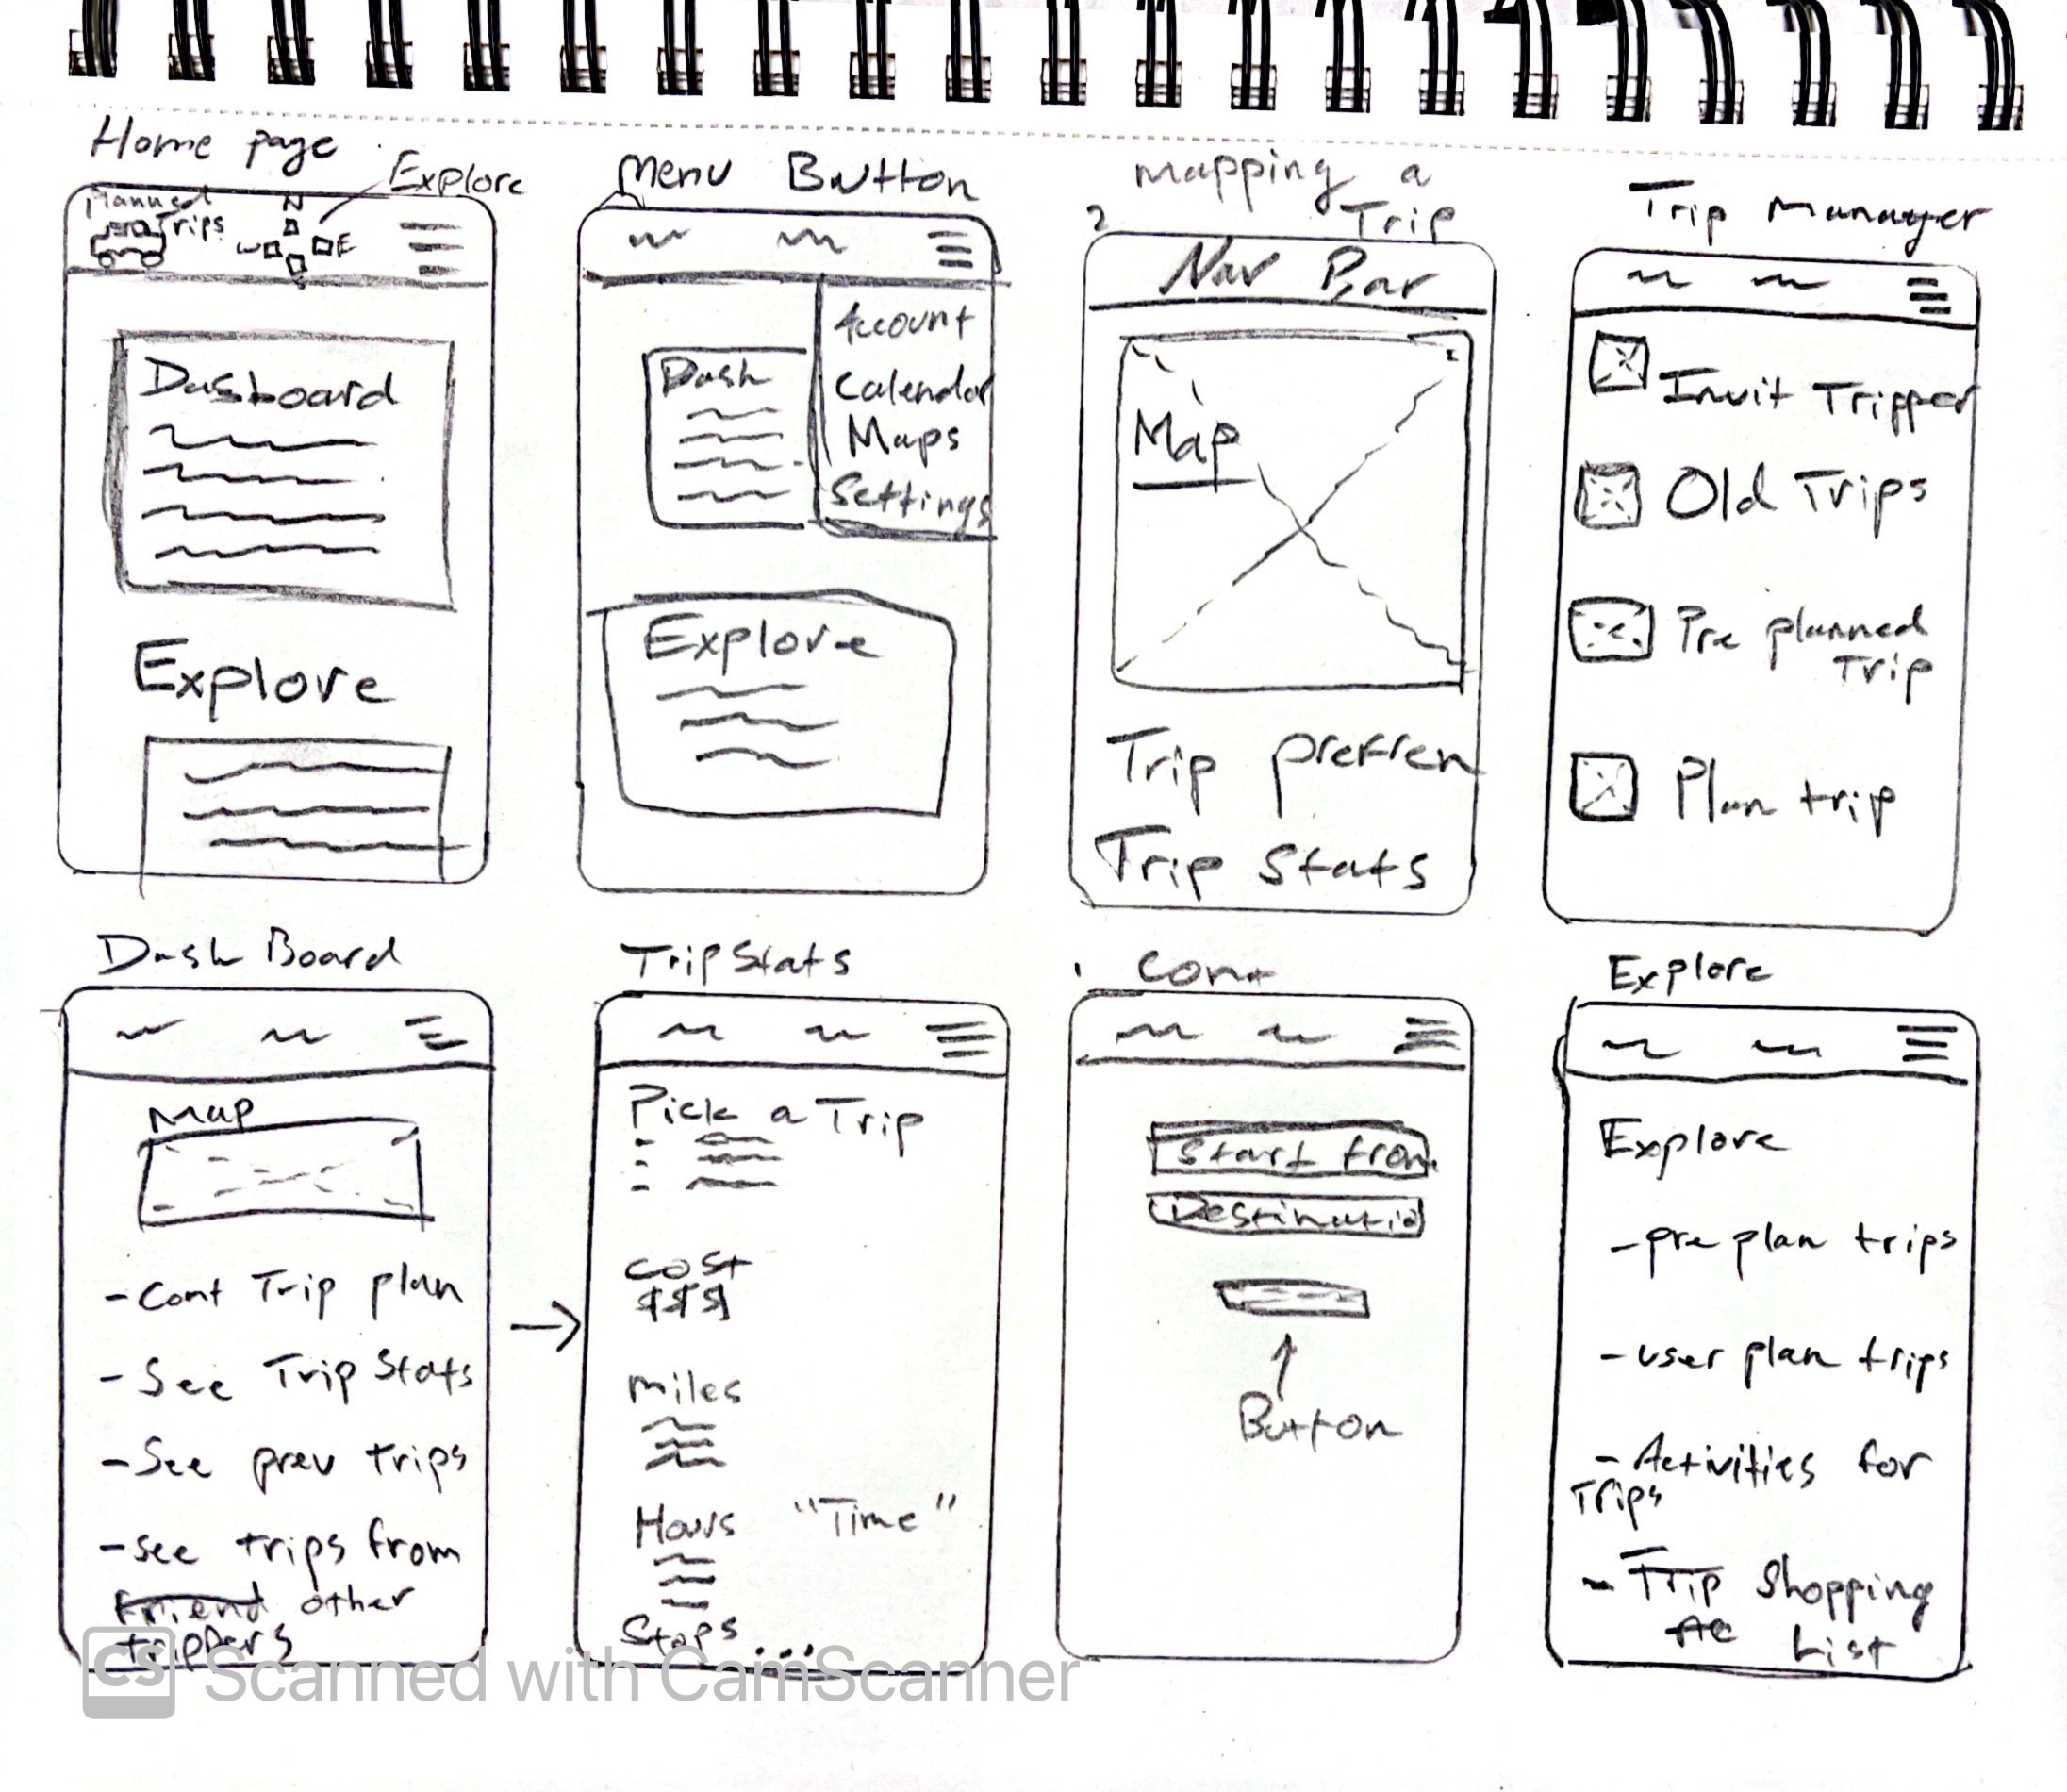 Home page
Explore
Planned
Trips
N
W
E
Dasboard
Explore
Menu Button
Account
Calendar
Maps
Settings
Dash
Explore
mapping a
Trip
2
Nav Bar
Map
Trip prefren
Trip Stats
Trip Manager
Invit Tripper
Old Trips
Pre planned
Trip
Plan trip
Dash Board
Map
- Cont Trip plan
- See Trip Stats
- See prev trips
- see trips from
Friend other
trippers
Trip Stats
Pick a Trip
Cost
$$$
miles
Hours "Time"
Stops ...
Cont
Start from
Destinatio
Button
Explore
Explore
- pre plan trips
- user plan trips
- Activities for
Trips
- Trip Shopping
Ac List
CS Scanned with CamScanner